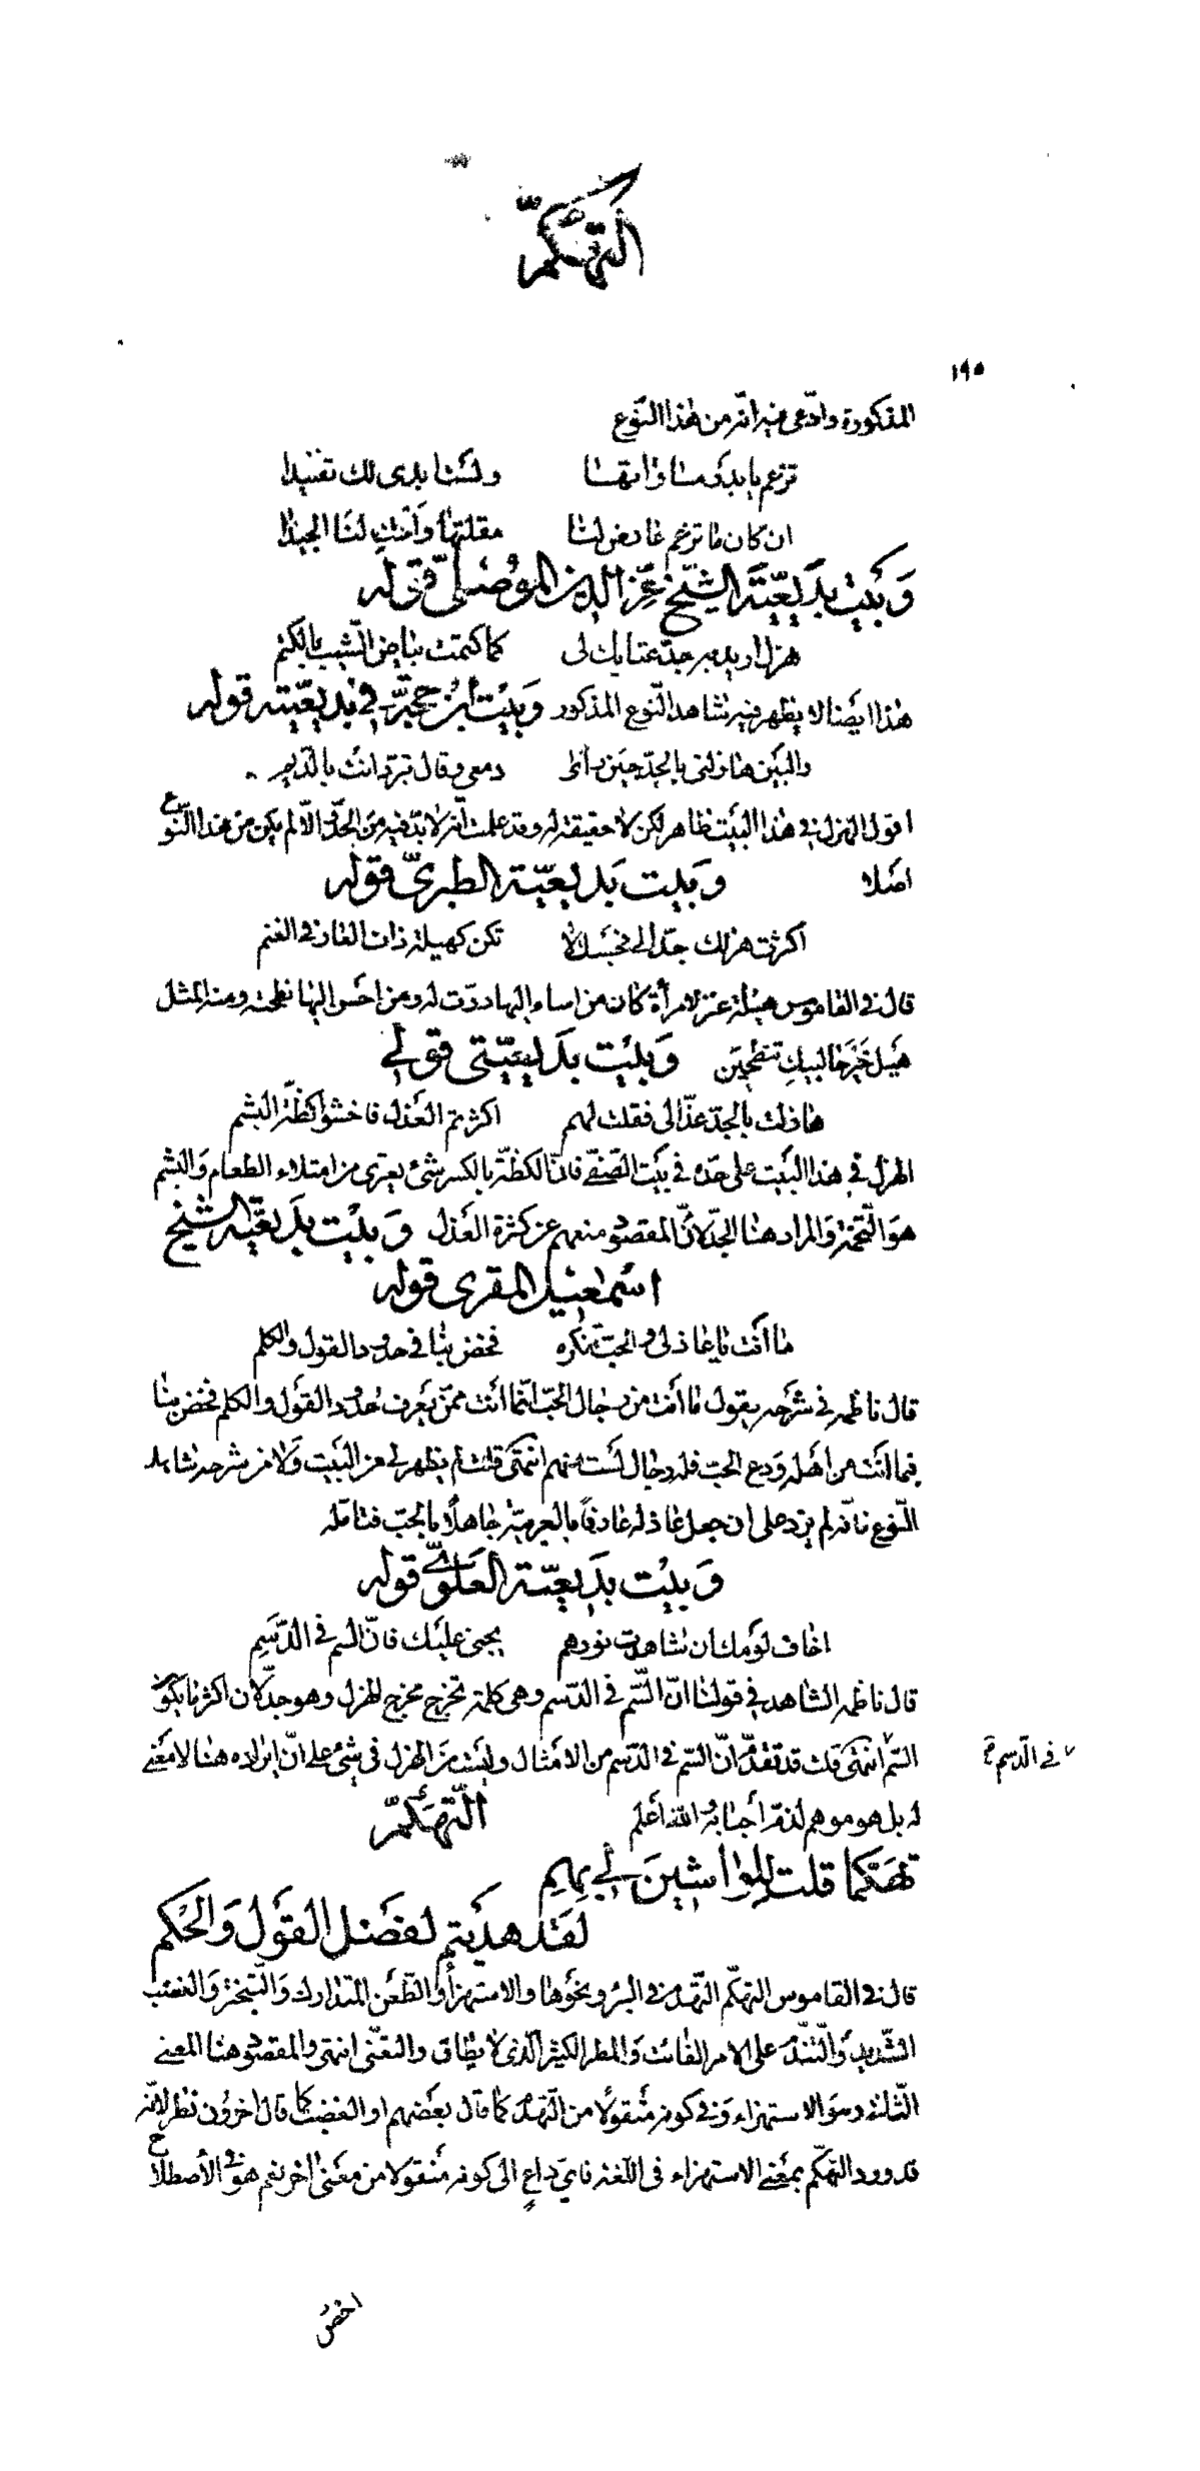 التهكّم
١٩٥
المذكورة وادّعى فيه انّه من هذا النّوع
تزعم يا بدر مساواتها ولست ابدى لك تفنيدا
ان كان ما تزعم عارض لنا مقلتها وَانحت لنَا الجيدا
وَبَيت بَديعيّة الشيخ عزّ الدين الموصلىّ قوله
هزل اريد به جدّ عتابك لى كما كتمت بياض الشيب بالكتم
هذا ايضا لا يظهر فيه شاهد النّوع المذكور وَبَيْت ابن حجّة في بديعيّته قوله
والبين هازلنى بالجدّ حين رأى دمعى وقال تبرّد انت بالديم
اقول الهزل فى هذا البيت ظاهر لكن لا حقيقة له وقد علمت انّه لا بدّ فيه من الجدّ والّا لم يكن من هذا النّوع
اصلا وَبَيت بَديعيّة الطبرىّ قوله
اكثرت هزلك جدّا لى فحسبك لا تكن كهيلة ذات الغار فى الغنم
قال فى القاموس هيلة عنز لامرأة كان من اساء اليها درّت له ومن احسن اليها نطحته ومنه المثل
هَيل خَير حالبيكِ تنطحين وَبَيْت بَديعيّتى قولى
هازلت بالجدّ عذّالى فقلت لهم اكثرتم العَذل فاخشوا كظّة البشم
الهزل فى هذا البَيت على حدّه فى بَيت الصّفىّ فانّ الكظّة بالكسر شئ يعترى من امتلاء الطعام وَالبشم
هوَ التّخمة وَالمراد هنا الجدّ لانّ المقصود منعهم عن كثرة العَذل وَبَيْت بَديعيّة الشيخ
اسْمٰعيل المقرى قوله
ما اَنت يا عاذلى والحبّ تنكره فخض بنا فى حدود القول والكلم
قال ناظمه فى شرحه يقول ما انت من رجال الحبّ انّما انت ممّن يَعرف حُدود القَول والكلم فخض بنا
فيما اَنت من اَهله وَدع الحبّ فله رجال لَست منهم انتهىٰ قلت لم يظهر لى من البَيت وَلا من شرحه شاهد
النّوع فانّه لم يزد على ان جعل عاذله عارفاً بالعربيّة جاهلًا بالحبّ فتامّله
وَبَيْت بَديعيّة العَلوىّ قوله
اخاف لَومك ان شاهدت نورهم يجنى عليك فانّ السم فى الدّسَمِ
قال ناظمه الشاهد فى قولنا انّ السّم فى الدسم وهى كلمة تخرج مخرج الهزل وهو جدّ لان اكثر ما يكون
السّم انتهى قلت قد تقدّم انّ السّم فى الدّسم من الامثال وليست من الهزل فى شئ على انّ ايراده هنا لا معنى
فى الدسم صح
له بل هو موهم لذمّ اَحبابه والله اَعلم التّهكّم
تهَكّما قلت للواشينَ لى بهِمِ
لقَد هديتم لفَصل القَول وَالحكم
قال فى القاموس التهكّم التّهدم فى البئر ونحوها والاستهزاء وَالطّعن المتدارك وَالتّبختر وَالغضب
الشّديد وَالتّندّم على الامر الفائت وَالمطر الكثير الّذى لا يُطاق والتغنّى انتهى والمقصود هنا المعنى
الثّانى وهو الاستهزاء وَفى كونه مَنقولًا من التّهدّم كما قال بعضهم او الغضب كما قال اخرون نظر لانّه
قد ورد التهكّم بمعنى الاستهزاء فى اللّغة فاىّ داعٍ الى كونه مَنقولا من معنى اخر نعم هو فى الأصطلاح
اخصّ